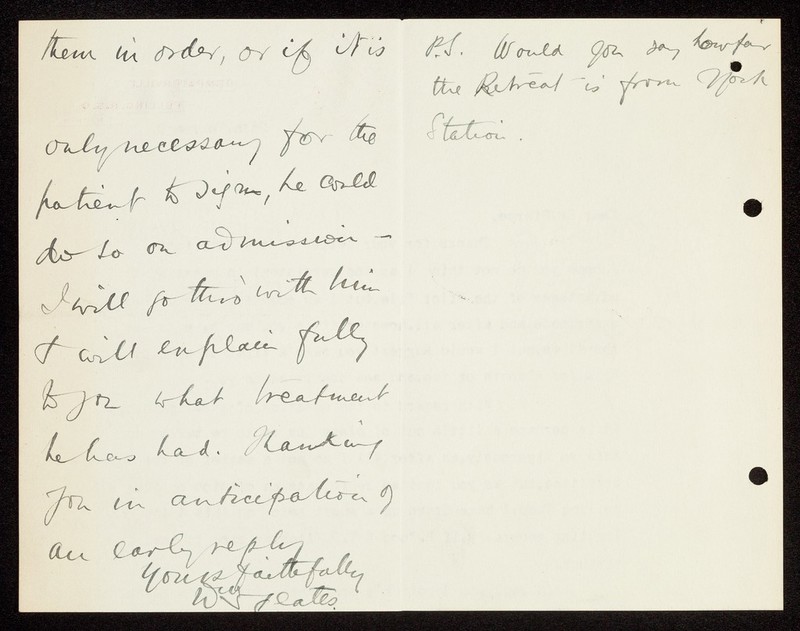 them in order, or if it is
only necessary for the
patient to sign, he could
do so on admission –
I will go thro' with him
& will explain fully
to you what treatment
he has had. Thanking
you in anticipation of
an early reply
Yours faithfully
P.S. Would you say how far
the Retreat is from York
Station.